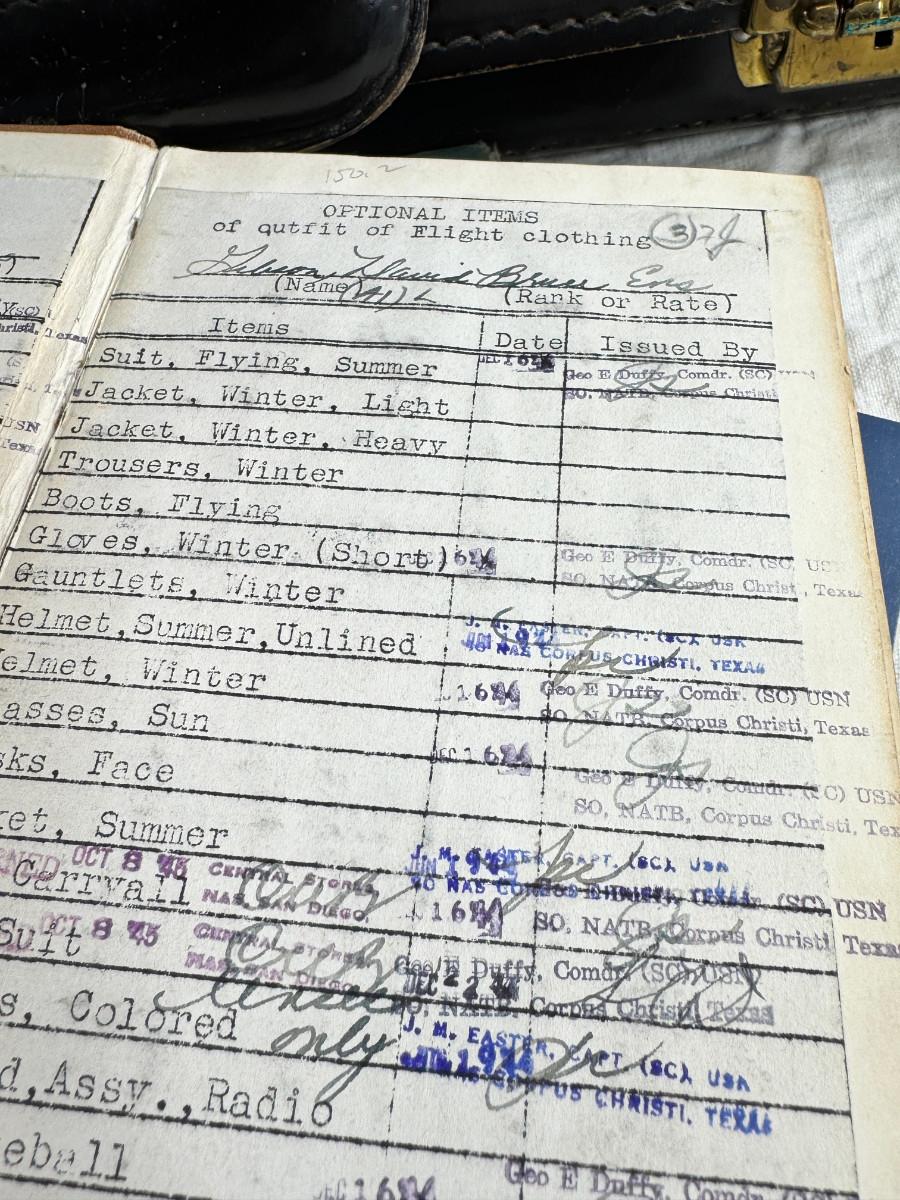 150.2
OPTIONAL ITEMS
of qutfit of Flight clothing (3)
Gibson, David Bruce Ens
(Name) (Rank or Rate)
Items Date Issued By
Suit, Flying, Summer DEC 16 Geo E Duffy, Comdr. (SC)
SO, NATB, Corpus Christi
Jacket, Winter, Light
Jacket, Winter, Heavy
Trousers, Winter
Boots, Flying
Gloves, Winter (Short) Geo E Duffy, Comdr. (SC) US
SO, NATB, Corpus Christi, Texas
Gauntlets, Winter
Helmet,Summer,Unlined J. M. EASTER, CAPT. (SC), USN
SO NAS CORPUS CHRISTI, TEXAS
elmet, Winter 16 Geo E Duffy, Comdr. (SC) USN
SO, NATB, Corpus Christi, Texas
asses, Sun DEC 16
sks, Face Geo E Duffy, Comdr. (SC) USN
SO, NATB, Corpus Christi, Tex
ket, Summer
OCT 8 '45 CENTRAL STORES J. M. EASTER, CAPT. (SC), USN
Carryall NAS, SAN DIEGO, SO NAS CORPUS CHRISTI, TEXAS (SC) USN
16 SO, NATB, Corpus Christi Texas
OCT 8 '45 CENTRAL STORES
Suit NAS SAN DIEGO Geo E Duffy, Comdr. (SC) USN
DEC 2 SO, NATB, Corpus Christi Texas
s, Colored lenses only J. M. EASTER, CAPT. (SC), USN
NAS CORPUS CHRISTI, TEXAS
d,Assy.,Radio
eball Geo E Duffy, Comdr
DEC 16